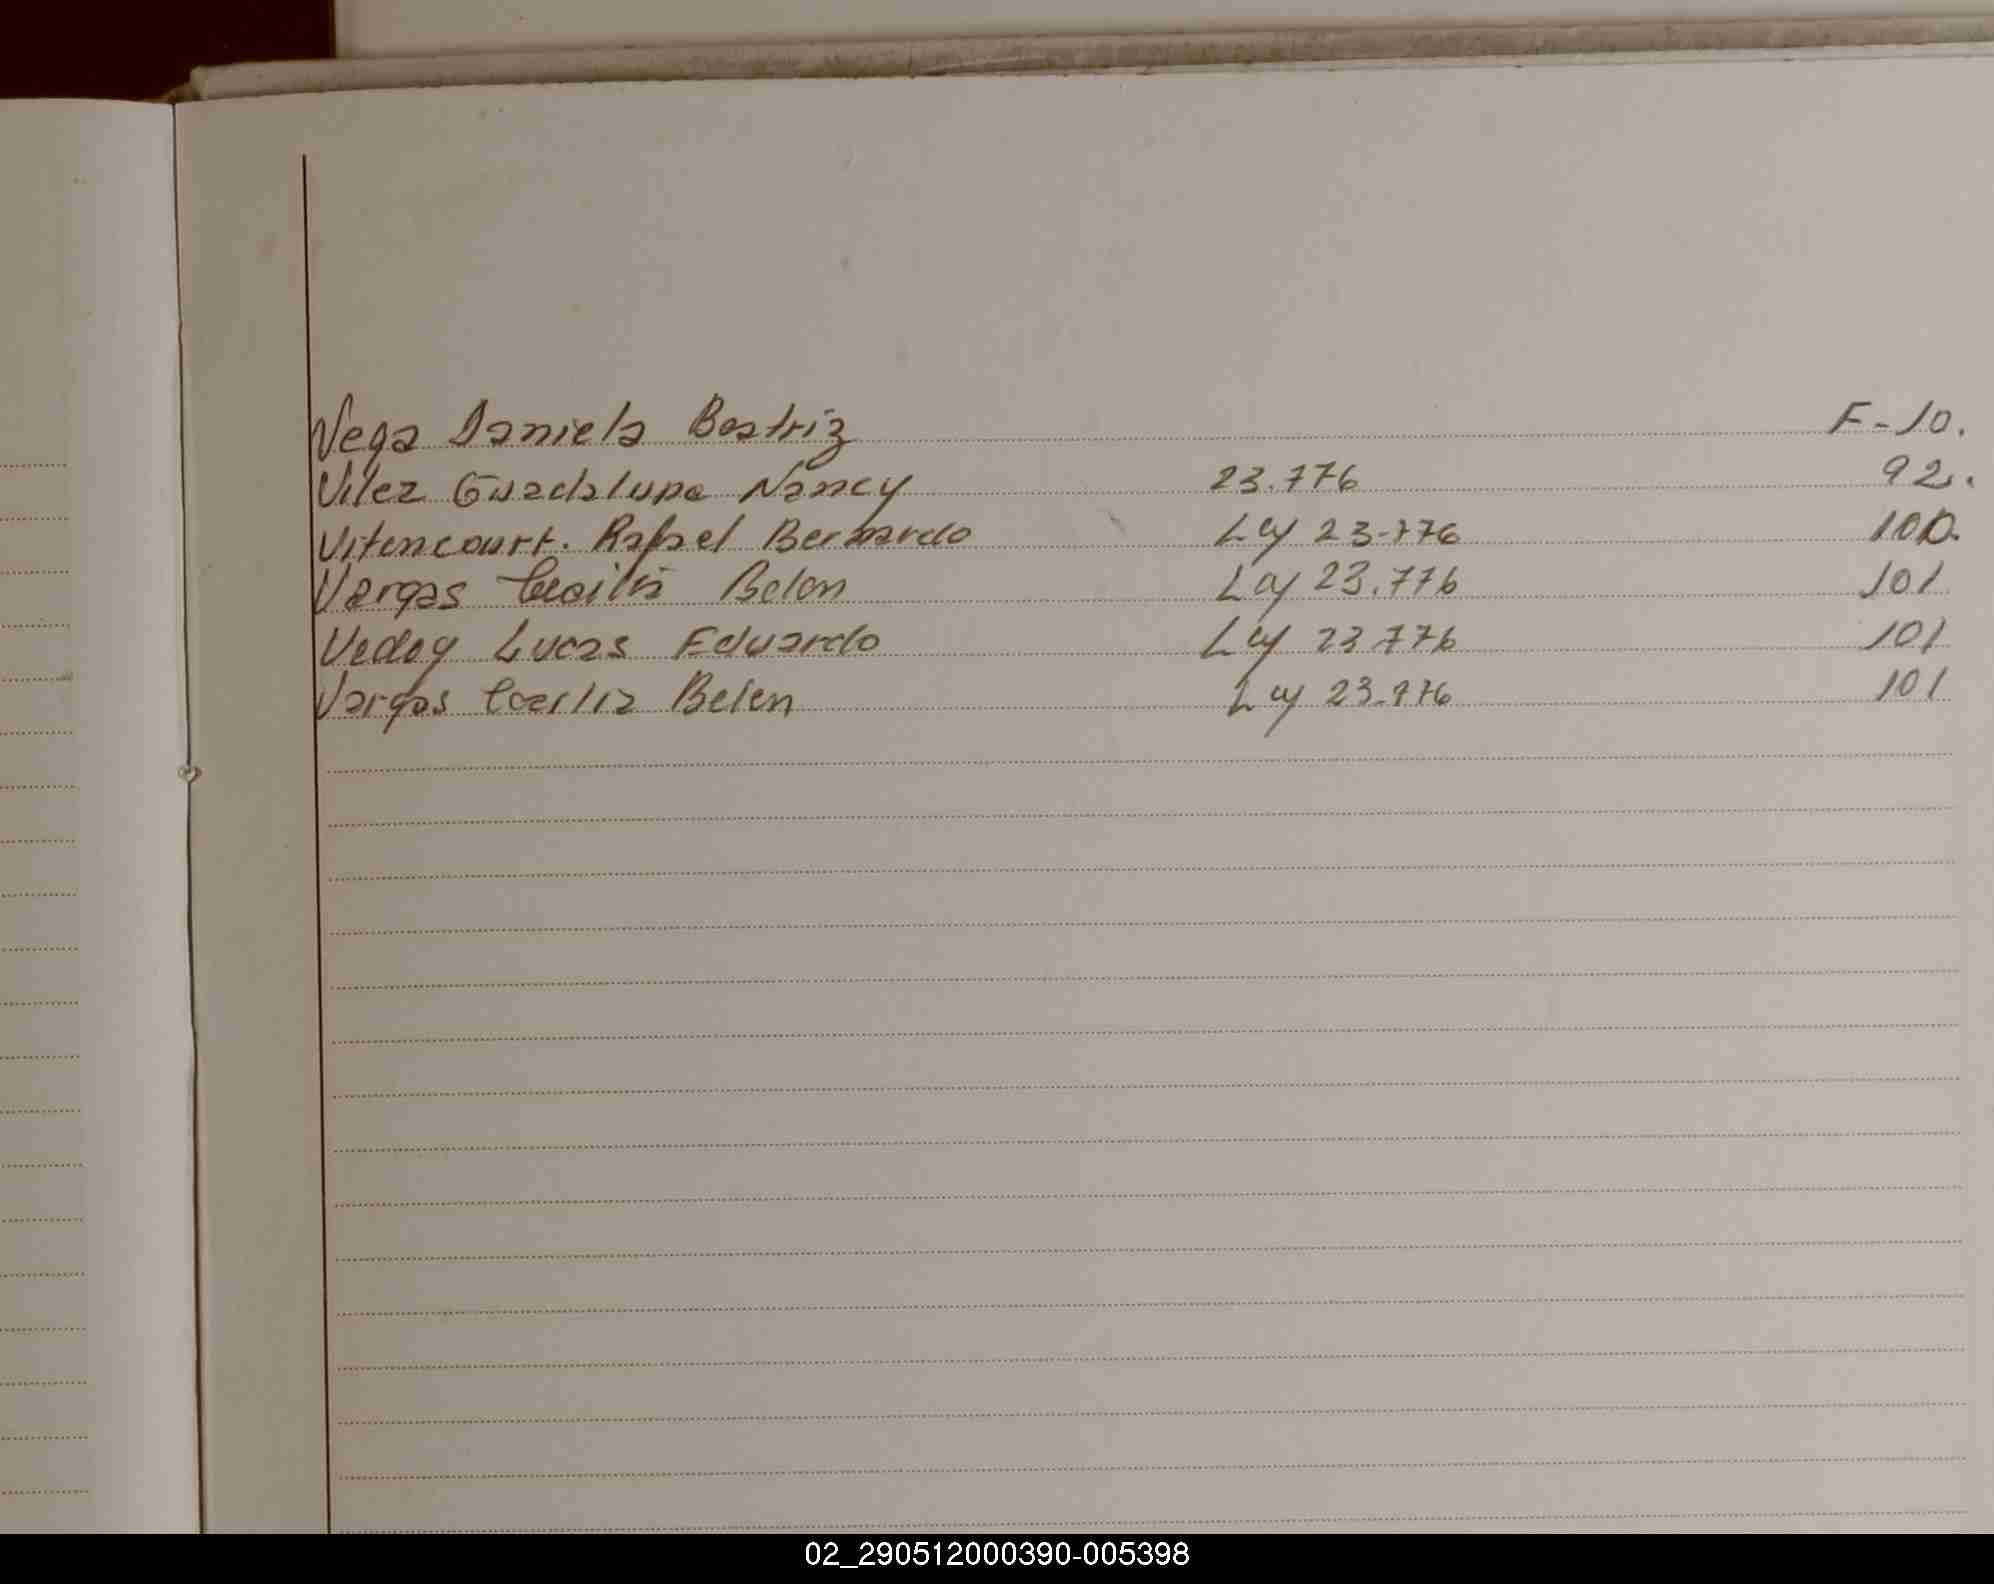 Vega Daniela Beatriz F-10.
Vilez Guadalupe Nancy 23.776 92.
Vitencourt. Rafael Bernardo Ley 23-776 100.
Vargas Cecilia Belen Ley 23.776 101
Vedoy Lucas Eduardo Ley 23.776 101
Vargas Cecilia Belen Ley 23.776 101
02_290512000390-005398